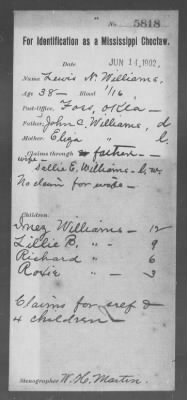 No. 5818
For Identification as a Mississippi Choctaw.
Date JUN 14, 1902,
Name Lewis N. Williams,
Age 38 — Blood 1/16
Post-Office, Foss, Okla —
Father, John C. Williams, d
Mother Eliza " l.
Claims through father —
wife —
Sallie E. Williams —
No claim for wife —
Children:
Inez Williams — 12
Lillie B. " — 9
Richard " — 6
Rosie — 3
Claims for self &
4 children —
Stenographer W. H. Martin.